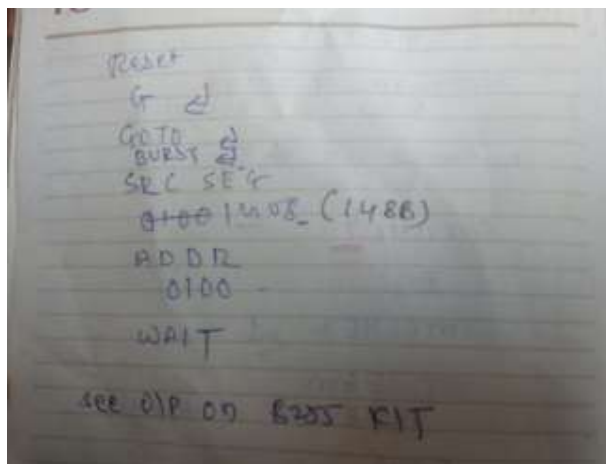 Reset
G ↵
GOTO ↵
BURST ↵
SRC SEG
(148B)
ADDR
0100
WAIT
see O/P on 8255 KIT